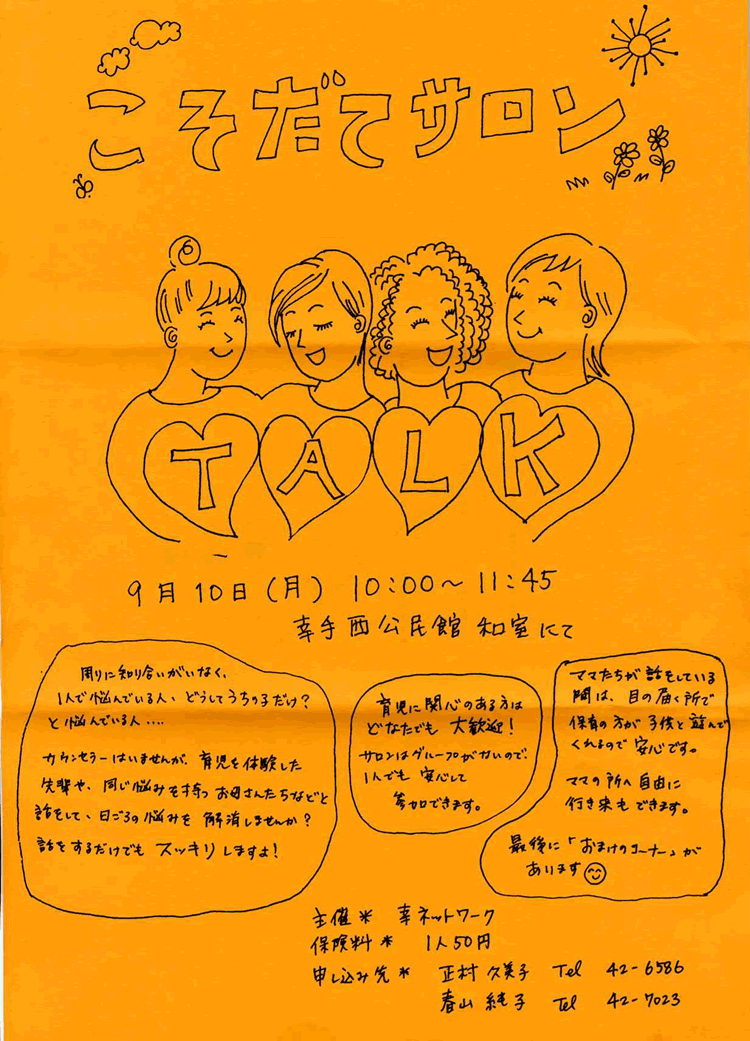 こそだてサロン
TALK
9月10日(月) 10:00〜11:45
幸手西公民館 和室にて
周りに知り合いがいなく、
1人で悩んでいる人、どうしてうちの子だけ?
と悩んでいる人....
カウンセラーはいませんが、育児を体験した
先輩や、同じ悩みを持つお母さんたちなどと
話をして、日ごろの悩みを解消しませんか?
話をするだけでもスッキリしますよ!
育児に関心のある方は
どなたでも大歓迎!
サロンはグループがないので、
1人でも安心して
参加できます。
ママたちが話をしている
間は、目の届く所で
保育の方が子供と遊んで
くれるので安心です。
ママの所へ自由に
行き来もできます。
最後に「おまけのコーナー」が
あります
主催* 幸ネットワーク
保険料* 1人50円
申し込み先* 正村久美子 Tel 42-6586
春山純子 Tel 42-7023